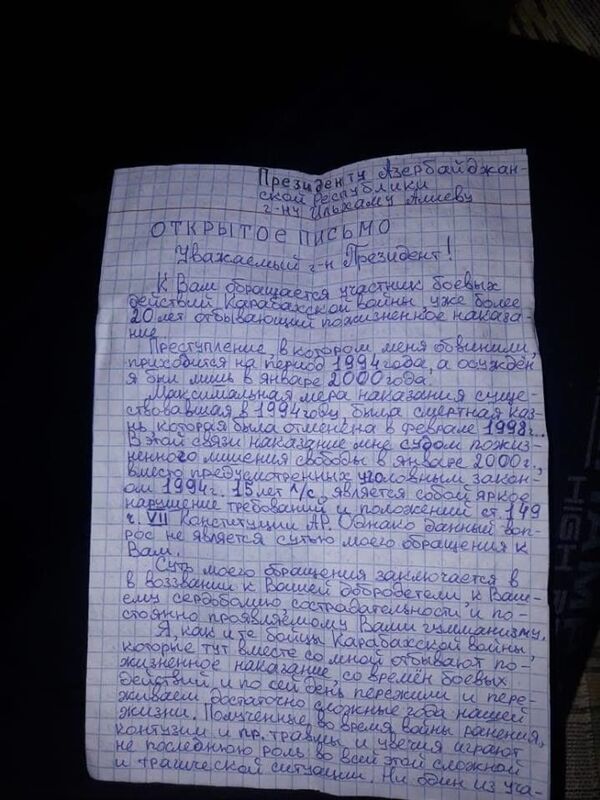 Президенту Азербайджан-
ской Республики
г-ну Ильхаму Алиеву
ОТКРЫТОЕ ПИСЬМО
Уважаемый г-н Президент!
К Вам обращается участник боевых
действий Карабахской войны уже более
20 лет отбывающий пожизненное наказа-
ние
Преступление, в котором меня обвинили,
приходится на период 1994 года, а осуждён
я был лишь в январе 2000 года.
Максимальная мера наказания суще-
ствовавшая в 1994 году, была смертная каз-
нь, которая была отменена в феврале 1998 г..
В этой связи наказание мне судом пожиз-
ненного лишения свободы в январе 2000 г.,
вместо предусмотренных уголовным закон-
ом 1994 г. 15 лет л/с, является собой яркое
нарушение требований и положений ст. 149
ч. VII Конституции АР. Однако данный воп-
рос не является сутью моего обращения к
Вам.
Суть моего обращения заключается в
в воззвании к Вашей добродетели, к Ваш-
ему сердоболию, сострадательности, и по-
стоянно проявляемому Вами гумманизму.
Я, как и те бойцы Карабахской войны,
которые тут вместе со мной отбывают по-
жизненное наказание, со времён боевых
действий, и по сей день пережили и пере-
живаем достаточно сложные года нашей
жизни. Полученные во время войны ранения,
контузии и пр. травмы и увечия играют
не последнюю роль во всей этой сложной
и трагической ситуации. Ни один из уча-